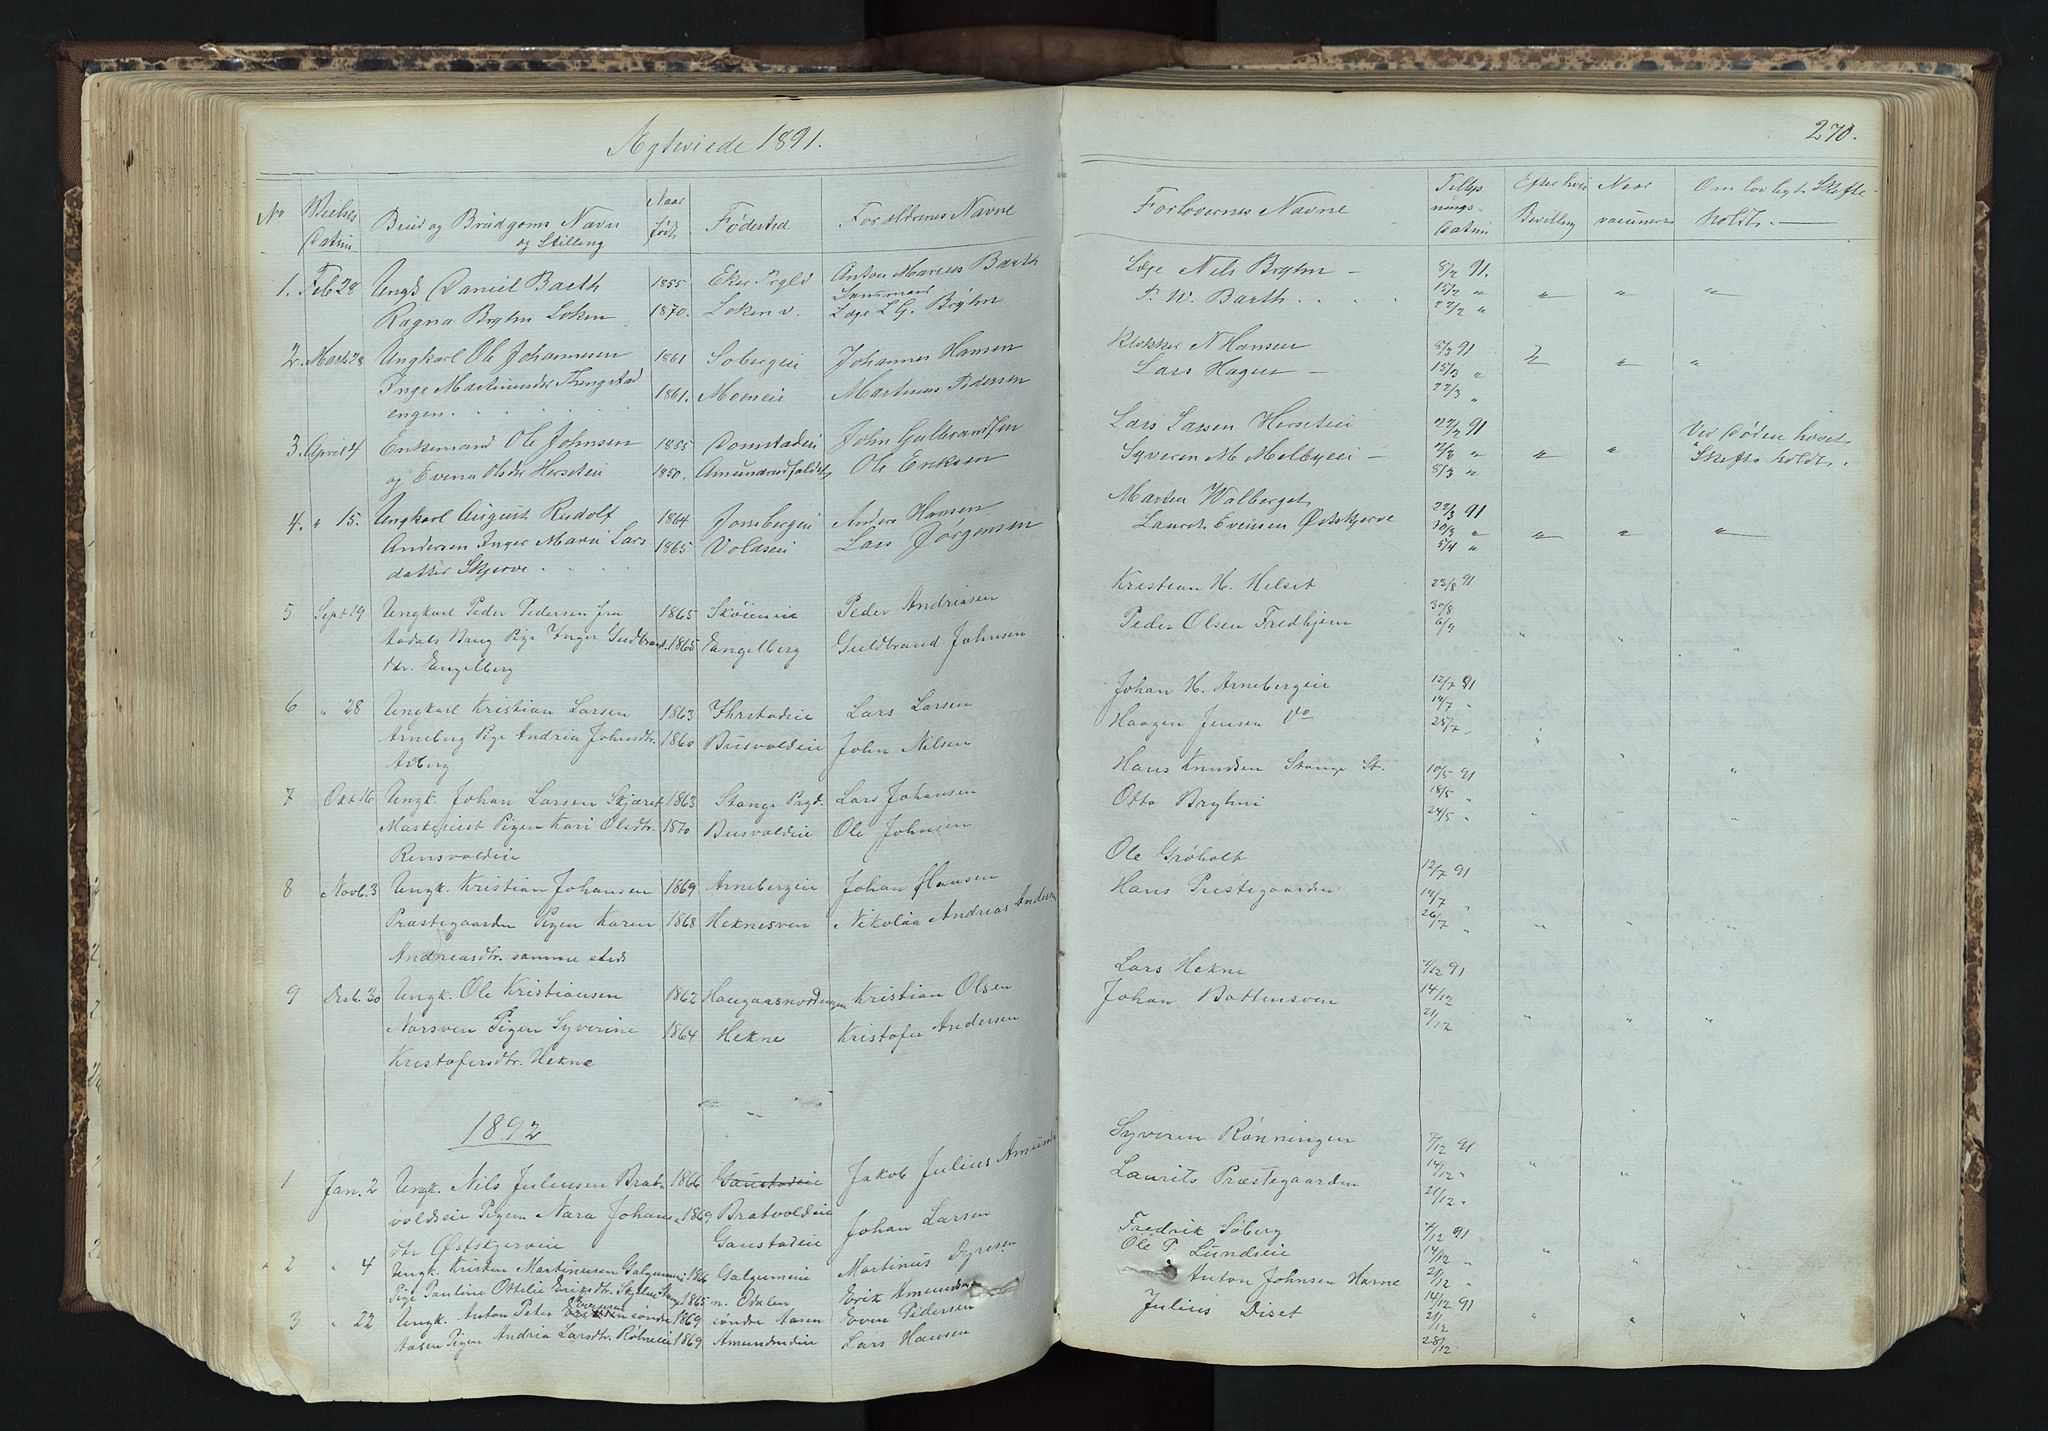 Ægteviede 1891.
270.
No Vielses Datum Brud og Brudgoms Navn og Stilling Aar født Fødested Forældrenes Navne Forlovernes Navne Tillysnings Datum Efter hvis Bevilling Naar vaccineret Om lovligt Skifte holdt
1. Feb 28 Ungk Daniel Barth 1855 Eker Prgld Anton Marius Barth Læge Nils Bryhn 8/2 91.
Ragna Bryhn Løken 1870. Løken v. Læge L G. Bryhn P. W. Barth 15/2 " 22/2 "
2. Marts 28 Ungkarl Ole Johannesen 1861 Søbergeie Johannes Hansen Klokker N Hansen 8/3 91
Inge Martinusdtr Thengstad 1861. Moeneie Martinus Pedersen Lars Hagen 15/3 "
engen. 22/3 "
3. April 4 Enkemand Ole Johnsen 1855 Domstadeie John Gulbrandsen Lars Larsen Herseteie 22/2 91 Ved Døden hvset
og Evena Olsdr Herseteie 1850. Amundrudfaldet Ole Eriksen Syveren M. Melbyeie 8/3 " Skifte holdt.
4. " 15. Ungkarl August Rudolf 1864 Jonsbergeie Anders Hansen Marten Walberget 22/3 91
Andersen Inger Marie Lars 1865 Voldseie Lars Jørgensen Laurits Evensen Østskjerve 30/3 "
datter Skjerve. 5/4 "
5 Sept 19 Ungkarl Peder Pedersen fra 1865 Skøieneie Peder Andreasen Kristian H. Helset 23/8 91
Aadals Brug Pige Inger Guldbrand 1865 Engelberg Guldbrand Johnsen Peder Olsen Fredhjem 30/8 6/9
dtr. Engelberg
6 " 28 Ungkarl Kristian Larsen 1863 Ihrstadeie Lars Larsen Johan H. Arnebergeie 12/7 91
Arneberg Pige Andrea Johnsdtr. 1860 Busvoldeie John Nilsen Haagen Jensen Do 19/7 25/7
Arberg
7 Okt 16 Ungk. Johan Larsen Skjæret 1863 Stange Prgd. Lars Johansen Hans Knudsen Stange St. 10/5 91
Maskinist Pigen Kari Olsdtr. 1870 Busvoldeie Ole Johnsen Otto Bryhni 18/5 24/5
Rensvoldeie
8 Novb. 3 Ungk. Kristian Johansen 1869 Arnebergeie Johan Hansen Ole Grøholt 12/7 91
Præstegaarden Pigen Karen 1868 Heknesven Nikolai Andreas Andersen Hans Præstegaarden 19/7 26/7
Andreasdtr. samme sted
9 Desb. 30 Ungk. Ole Kristiansen 1862 Haugaasnordengen Kristian Olsen Lars Hekne 7/12 91
Narsven Pigen Syverine 1864 Hekne Kristofer Andersen Johan Bottensven 14/12 21/12
Kristofersdtr. Hekne
1892
1 Jan. 2 Ungk. Nils Juliussen Brat 1866 Gaustadeie Jakob Julius Amunds Syveren Rønningen 7/12 91
voldseie Pigen Nara Johans 1869 Bratvoldeie Johan Larsen Laurits Præstegaarden 14/12 21/12
dtr Østskjerveie Gaustadeie
2 " 4 Ungk. Kristen Martinusen Galgumeie 1866 Galgumeie Martinus Dyresen Fredrik Søberg 7/12 91
Pige Pauline Ottelie Eriksdtr. 1865 n. Odalen Erik Amundsen Ole P. Lundseie 14/12 21/12
3 " 22 Ungk. Anton Peter Evensen søndre 1869 søndre Aasen Even Pedersen Anton Johnsen Horne 14/12 91
Aasen Pigen Andrea Larsdtr. Røhneeie 1869 Amundrudeie Lars Hansen Julius Diset 21/12 28/12